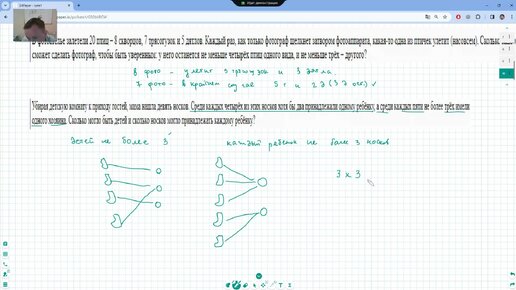 В фотоателье залетели 20 птиц – 8 скворцов, 7 трясогузок и 5 дятлов. Каждый раз, как только фотограф щелкнет затвором фотоаппарата, какая-то одна из птичек улетит (насовсем). Сколько
сможет сделать фотограф, чтобы быть уверенным: у него останется не меньше четырёх птиц одного вида, и не меньше трёх – другого?
8 фото – улетит 5 трясогузок и 3 дятла
7 фото – в крайнем случае 5 т и 2 д (3 д ост)
Убирая детскую комнату к приходу гостей, мама нашла девять носков. Среди каждых четырёх из этих носков хотя бы два принадлежали одному ребёнку, а среди каждых пяти не более трёх имели
одного хозяина. Сколько могло быть детей и сколько носков могло принадлежать каждому ребёнку?
детей не более 3
каждый ребенок не более 3 носков
3 x 3